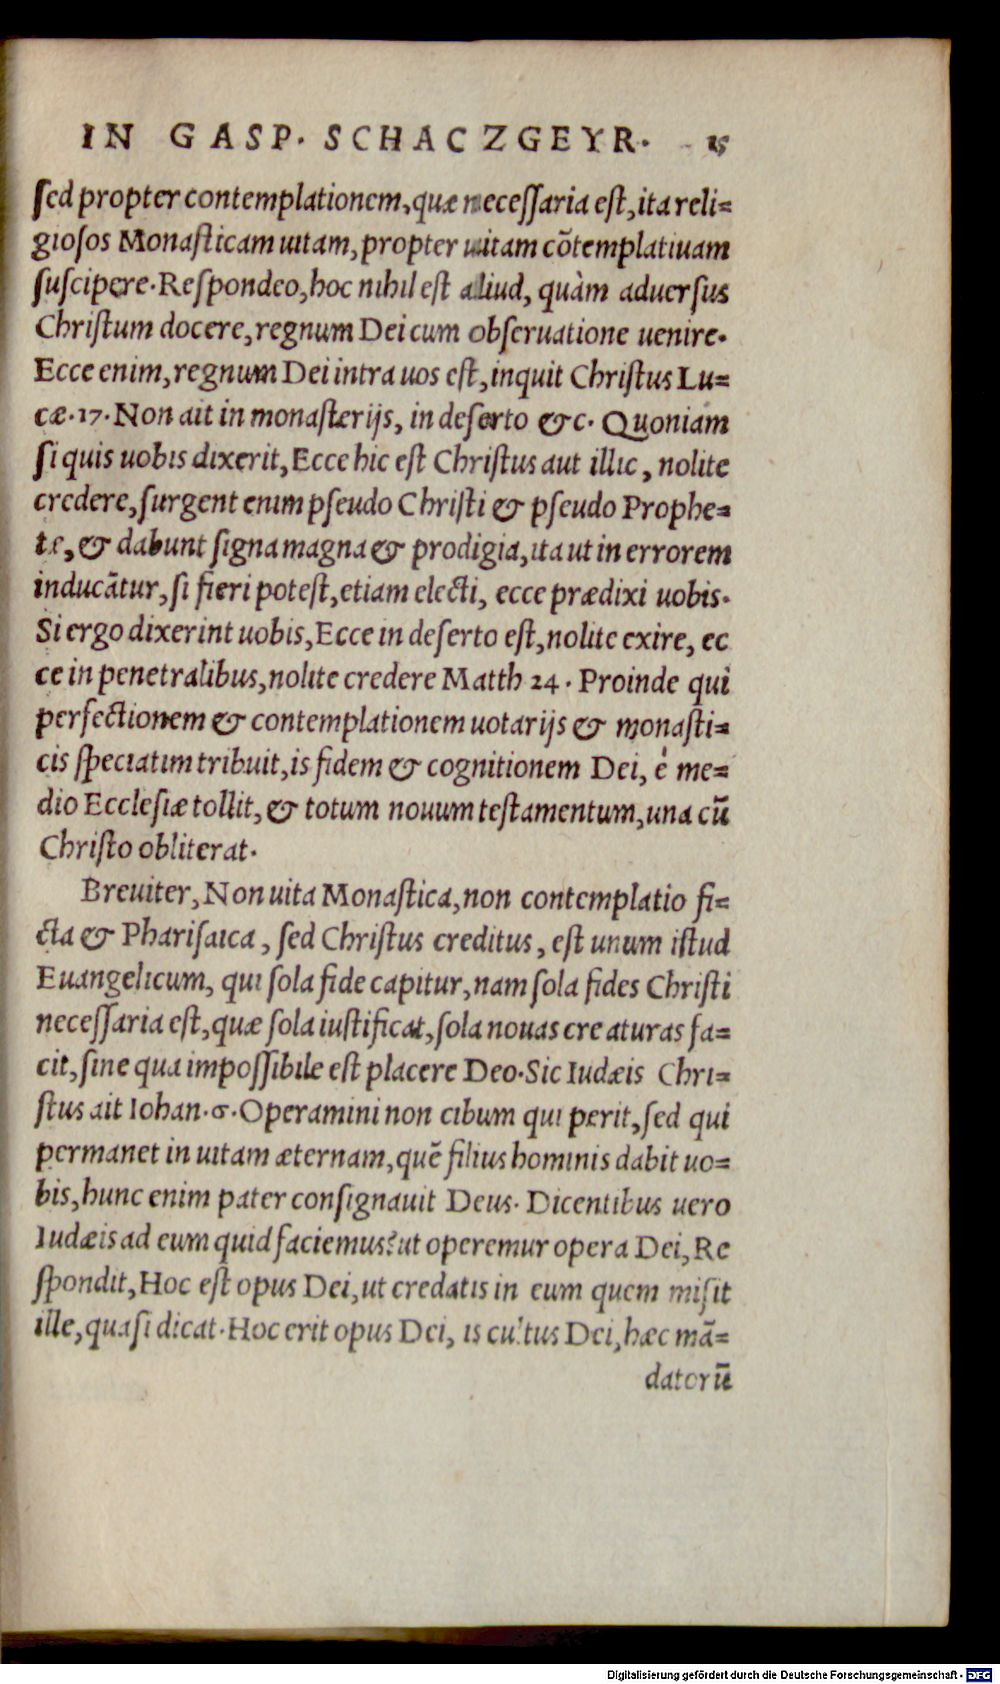 IN GASP. SCHACZGEYR. 15
ſed propter contemplationem, quæ neceſſaria eſt, ita reli=
gioſos Monaſticam uitam, propter uitam cõtemplatiuam
ſuſcipere. Reſpondeo, hoc nihil eſt aliud, quàm aduerſus
Chriſtum docere, regnum Dei cum obſeruatione uenire.
Ecce enim, regnum Dei intra uos eſt, inquit Chriſtus Lu=
cæ. 17. Non ait in monaſterijs, in deſerto &c. Quoniam
ſi quis uobis dixerit, Ecce hic eſt Chriſtus aut illic, nolite
credere, ſurgent enim pſeudo Chriſti & pſeudo Prophe=
tæ, & dabunt ſigna magna & prodigia, ita ut in errorem
inducãtur, ſi fieri poteſt, etiam electi, ecce prædixi uobis.
Si ergo dixerint uobis, Ecce in deſerto eſt, nolite exire, ec
ce in penetralibus, nolite credere Matth 24. Proinde qui
perfectionem & contemplationem uotarijs & monaſti=
cis ſpeciatim tribuit, is fidem & cognitionem Dei, è me=
dio Eccleſiæ tollit, & totum nouum teſtamentum, una cũ
Chriſto obliterat.
Breuiter, Non uita Monaſtica, non contemplatio fi=
cta & Phariſaica, ſed Chriſtus creditus, eſt unum iſtud
Euangelicum, qui ſola fide capitur, nam ſola fides Chriſti
neceſſaria eſt, quæ ſola iuſtificat, ſola nouas cre aturas fa=
cit, ſine qua impoſſibile eſt placere Deo. Sic Iudæis Chri=
ſtus ait Iohan. 6. Operamini non cibum qui perit, ſed qui
permanet in uitam æternam, quẽ filius hominis dabit uo=
bis, hunc enim pater conſignauit Deus. Dicentibus uero
Iudæis ad eum quid faciemus? ut operemur opera Dei, Re
ſpondit, Hoc eſt opus Dei, ut credatis in eum quem miſit
ille, quaſi dicat. Hoc erit opus Dei, is cultus Dei, hæc mã=
datorũ
Digitalisierung gefördert durch die Deutsche Forschungsgemeinschaft - DFG